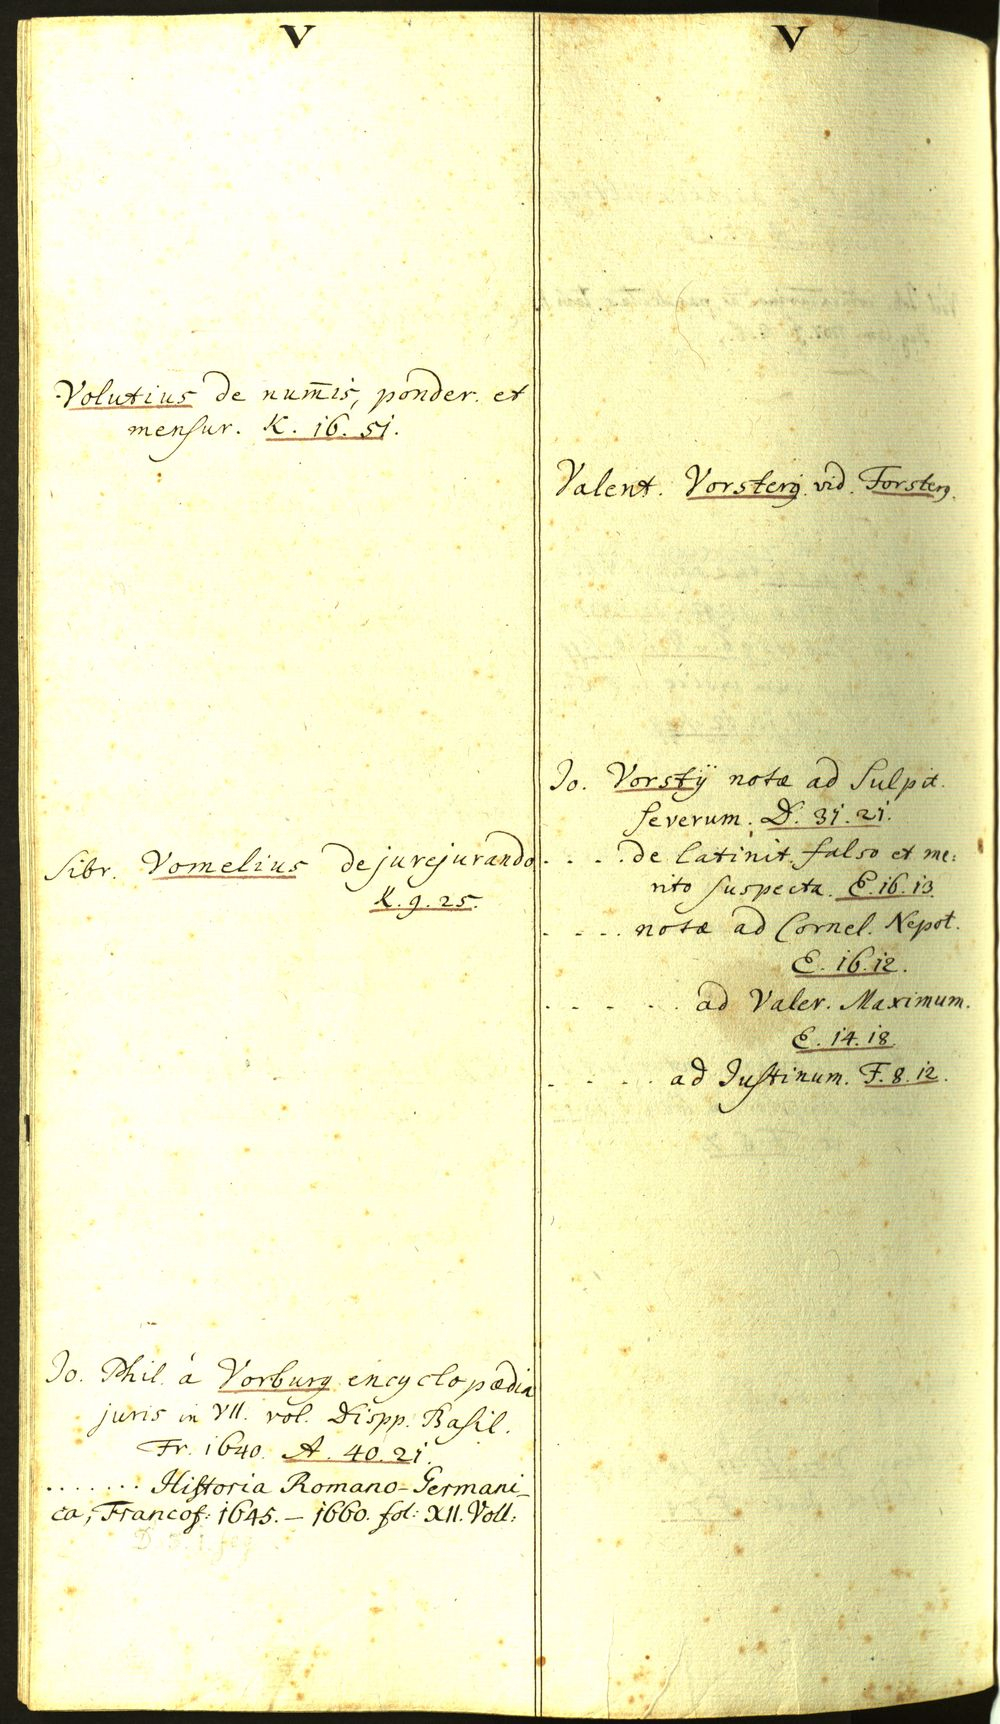 V
Volutius de num̄is, ponder. et
mensur. K. 16. 51.
Sibr. Vomelius de jurejurando
K. 9. 25.
Jo. Phil. à Vorburg encyclopædia
juris in VII. vol. Dispp. Basil.
Fr. 1640. A. 40. 21.
....... Historia Romano-Germani-
ca, Francof: 1645. — 1660. fol: XII. Voll:
V
Valent. Vorsterq. vid. Forsterq.
Jo. Vorstÿ notæ ad Sulpit.
Severum. D. 31. 21.
. . . . de latinit. falso et me:
rito suspecta. E. 16. 13.
. . . . notæ ad Cornel. Nepot.
E. 16. 12.
. . . . . ad Valer. Maximum.
E. 14. 18.
. . . . ad Justinum. F. 8. 12.